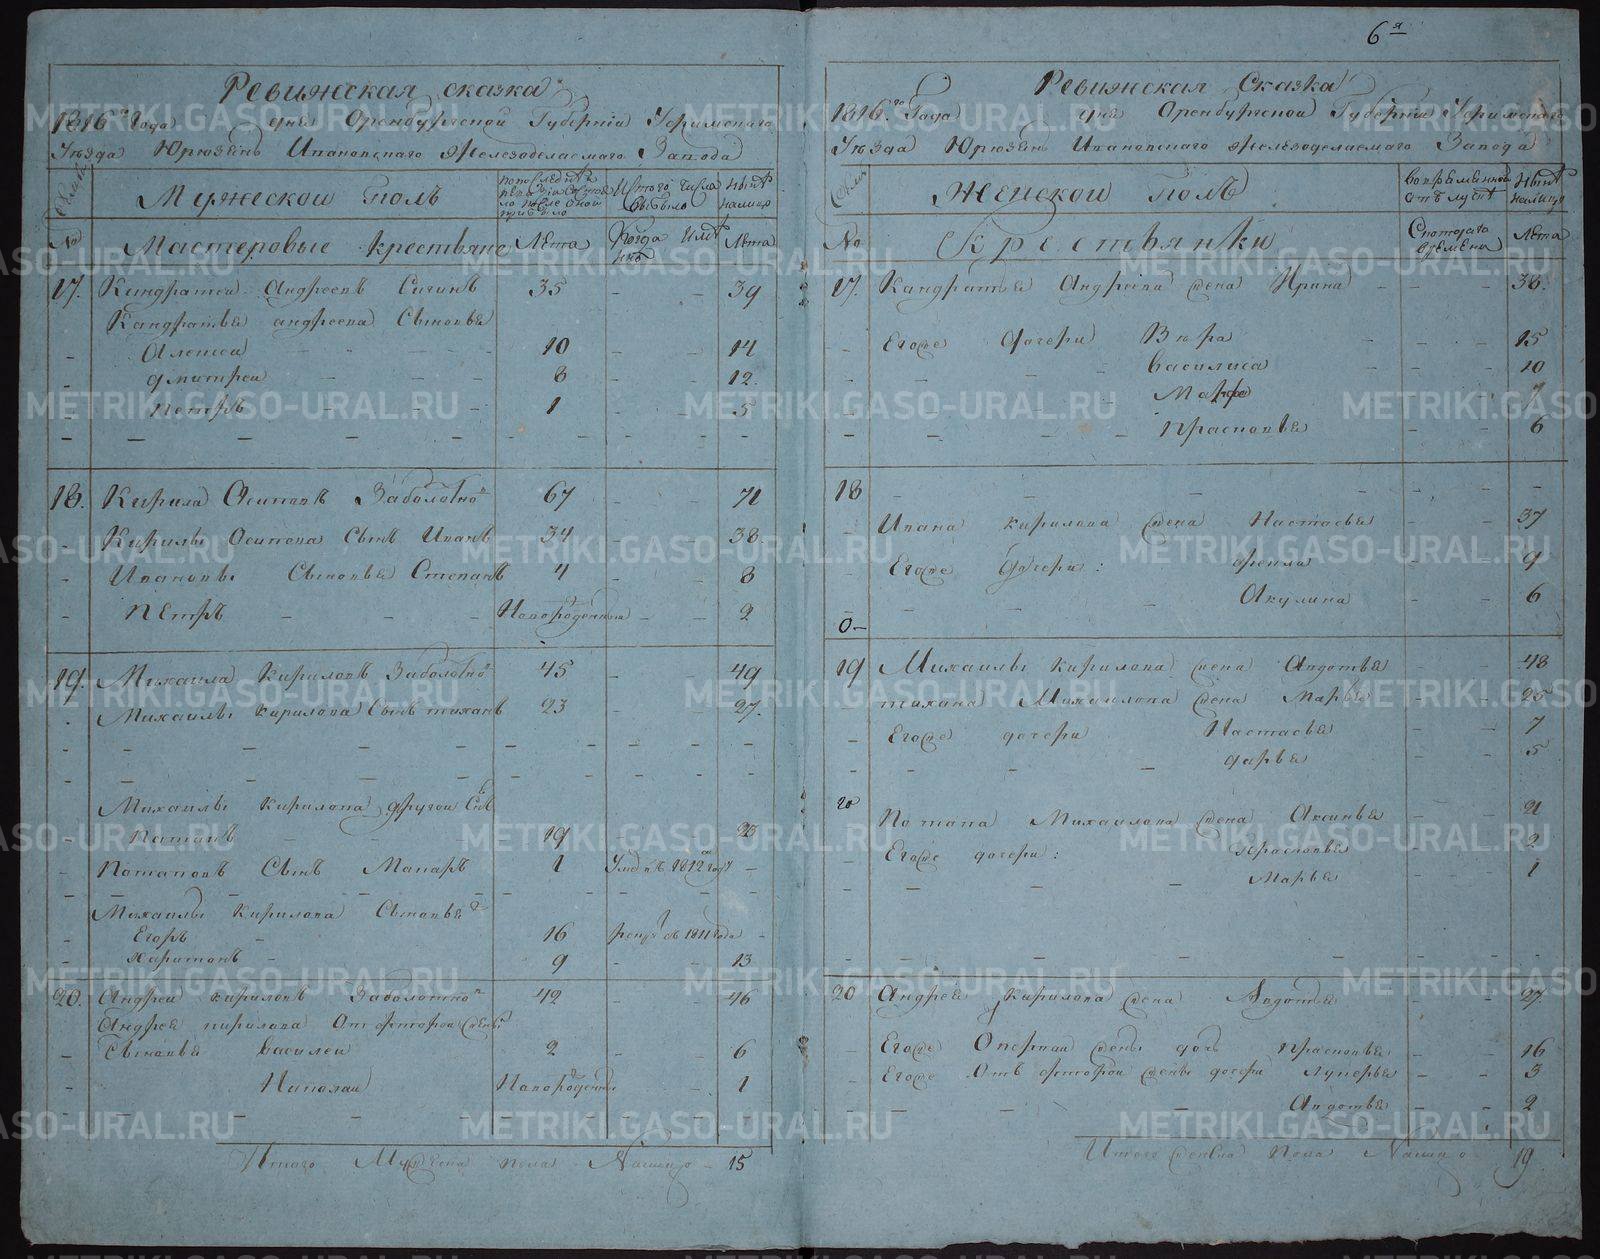 6я
Ревижская сказка
1816го Года дня Оренбургской Губернiи Уфимскаго
Уѣзда Юрюзень Ивановскаго Железоделаемаго Завода
Мужеской полъ
Мастеровые крестьяне
Лѣта
Когда имѣнно
Лѣта
Изтого числа выбыло
Нынѣ налицо
17. Кандратей Андреевъ Сычинъ 35 - - 39
Кандратья андреева Сыновья
Алексеи 10 - - 14
дмитреи 8 - - 12.
Петръ 1 - - 5
18. Кирила Осиповъ Заболотно 67 - - 71
Кирилы Осипова Сынъ Иванъ 34 - - 38.
Ивановы Сыновья Степанъ 4 - - 8
Пѣтръ Новорожденный - - 2
19. Михаила Кириловъ Заболотно 45 - - 49
Михаилы кирилова Сынъ тиханъ 23 - - 27.
Михаилы кирилова другой Снъ
Патапъ 19 - - 23
Потаповъ Сынъ Макаръ 1 Умѣ въ 1812 году -
Михаилы Кирилова Сыновья
Егоръ 16 рекру въ 1811 годе -
харитонъ 9 - - 13
20. Андреи кириловъ Заболотно 42 - - 46
Андрея кирилова От фторои жены
Сыновья василеи 2 - - 6
Николаи Новорожденны - 1
Итого Мужеска пола Налицо - 15
Ревижская Сказка
1816го Года дня Оренбургской Губернiи Уфимскаго
Уѣзда Юрюзень Ивановскаго Железоделаемаго Завода
Женской полъ
Вовремянной отълучкѣ
Нынѣ налицо
№ Крестьянки
Скоторого времѣна
Лѣта
17. Кандратья Андреева жена Ирина - - 38.
Егоже дочери Вѣра 15
василиса - - 10
Марфа 7
Прасковья - - 6
18
Ивана кирилова жена Настасья - - 37
Егоже дочери: фекла - - 9
Акулина - - 6
0-
19 Михаилы кирилова жена Авдотья - - 48
тихана Михаилова жена Марья - - 25
Егоже дочери Настасья - - 7
дарья 5
Потапа Михаилова жена Аксинья - - 21
Егоже дочери: Прасковья - 2
Марья 1
20 Андрея кирилова жена Авдотья - - 37
Егоже Отпервой жены дочь Прасковья - - 16
Егоже Отъ фторои жены дочери Лукерья - - 3
Авдотья - - 2
Итого женска пола Налицо - 19